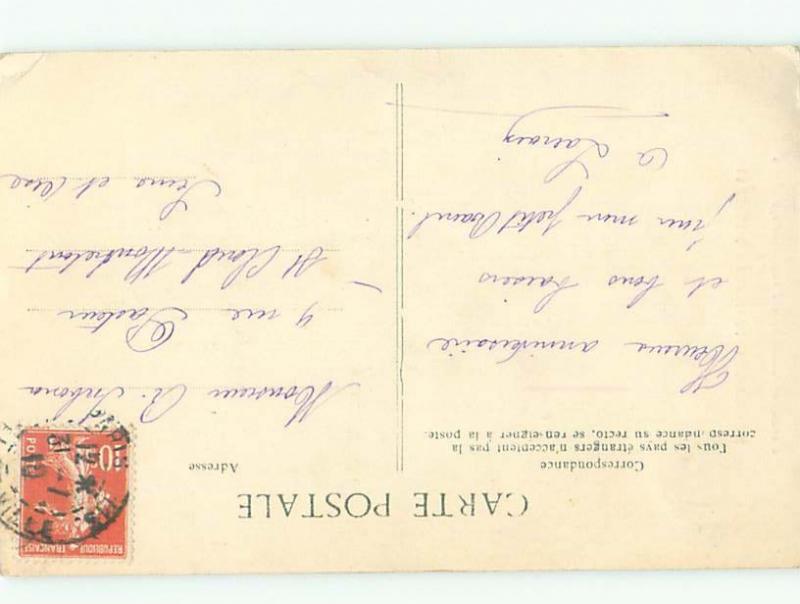 CARTE POSTALE
Correspondance
Tous les pays étrangers n'acceptent pas la
correspondance au recto, se renseigner à la poste.
Heureux anniversaire
et bons baisers
pour mon petit
Adresse
Monsieur R.
9 rue Pasteur
St Cloud Montretout
Seine et Oise
REPUBLIQUE FRANÇAISE
10